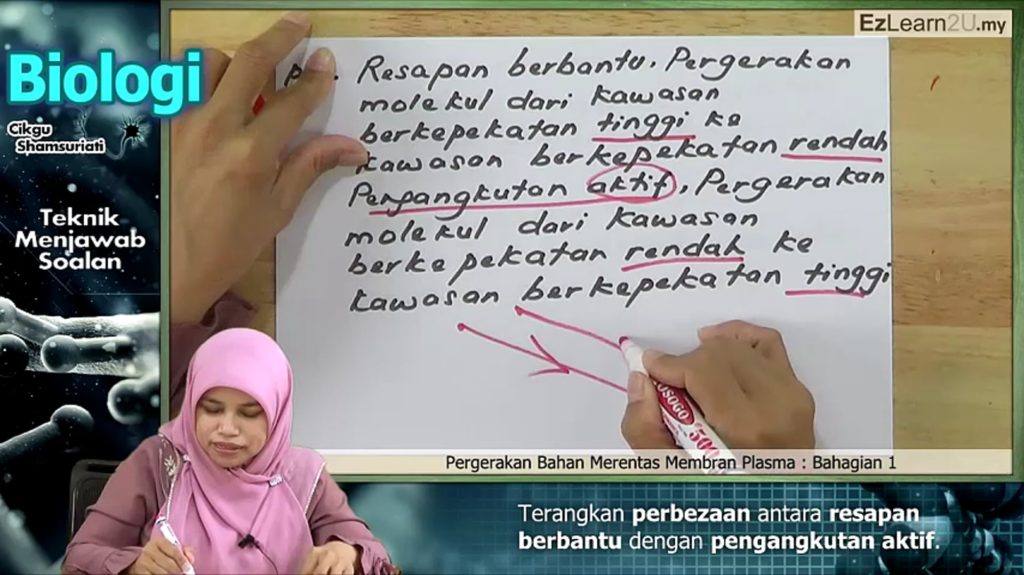 EzLearn2U.my
Biologi
Cikgu
Shamsuriati
Teknik
Menjawab
Soalan
Resapan berbantu. Pergerakan
molekul dari kawasan
berkepekatan tinggi ke
kawasan berkepekatan rendah
Pengangkutan aktif. Pergerakan
molekul dari kawasan
berkepekatan rendah ke
kawasan berkepekatan tinggi
Pergerakan Bahan Merentas Membran Plasma : Bahagian 1
Terangkan perbezaan antara resapan
berbantu dengan pengangkutan aktif.